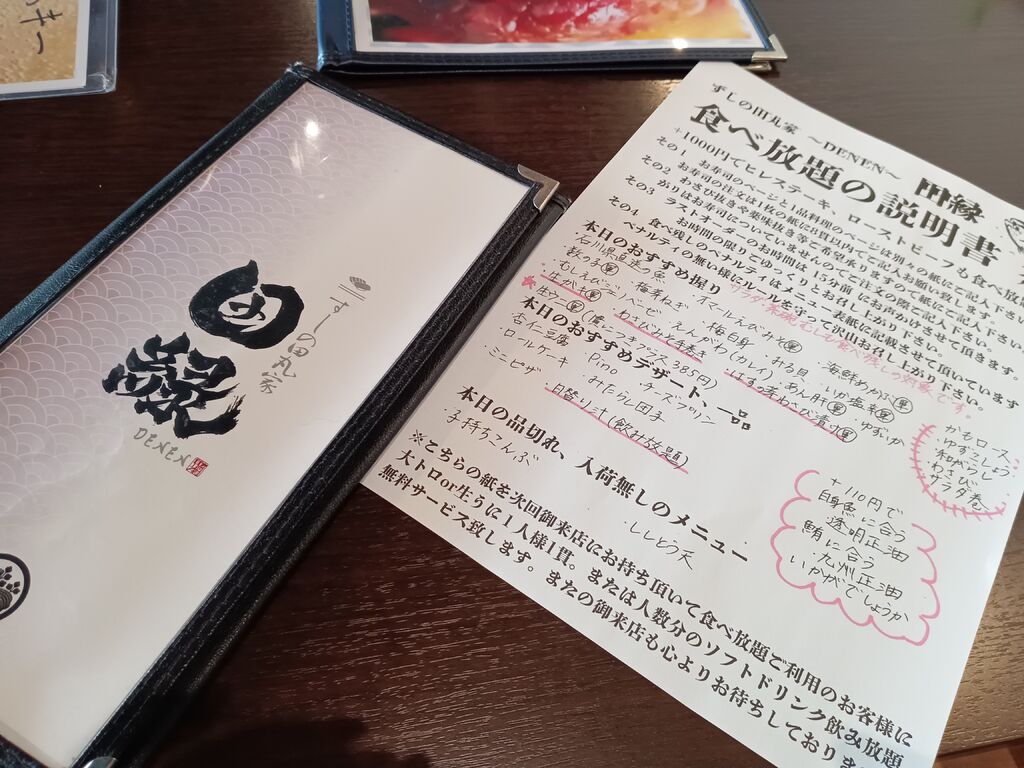 キー
すしの田丸家
田縁
DENEN
すしの田丸家 ~DENEN~ 田縁
食べ放題の説明書
+1000円でヒレステーキ、ローストビーフも食べ
その1 お寿司のページと1品料理のページは別々の紙にご記入下さい
お寿司の注文は1枚の紙に8貫以内でご記入お願い致します
その2 わさび抜きや薬味抜き等ご希望承りますので紙にご記入下さい
がりはお寿司についていませんのでご注文の際ご記入下さい。
その3 ラストオーダーのお時間は15分前にお声かけさせて頂きます。
お時間の限りごゆっくりとお召し上がり下さい。
その4 食べ残しのペナルティはメニュー表紙に記載させて頂いています
ペナルティの無い様にルールを守って沢山お召し上がり下さい。
本日のおすすめ握り
石川県直送の魚
・数の子
・梅芽ねぎ
・梅白身
・みる貝
・海鮮めかぶ
・生かき
・えんがわ(カレイ)
・あん肝
・いか塩辛
・わさびなど手巻き
本日のおすすめデザート、一品
・杏仁豆腐
・Pino
・チーズプリン
・ロールケーキ
・みたらし団子
・ミニピザ
・日替り汁(飲み放題)
かもロース
ゆずこしょう
和がらし
わさび
サラダ巻
本日の品切れ、入荷無しのメニュー
・子持ちこんぶ
・ししとう天
+110円で
白身魚に合う
透明正油
鮪に合う
九州正油
いかがでしょうか
※こちらの紙を次回御来店にお持ち頂いて食べ放題ご利用のお客様に
大トロor生うに1人様1貫。または人数分のソフトドリンク飲み放題
無料サービス致します。またの御来店も心よりお待ちしており